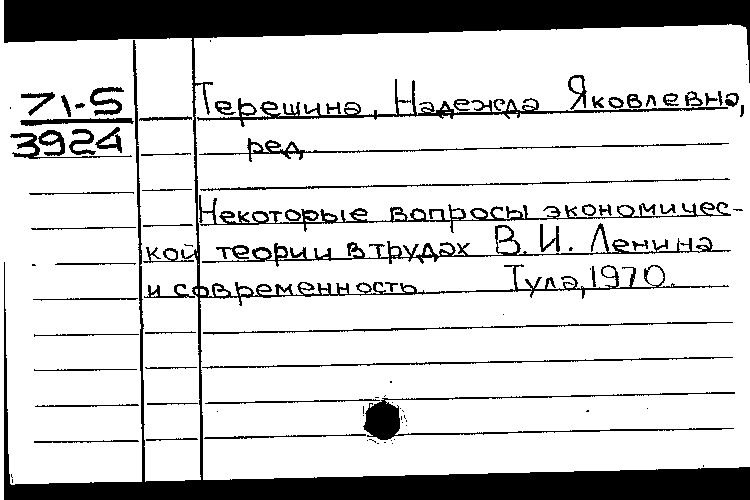 71-5
3924
Терешина, Надежда Яковлевна,
ред.
Некоторые вопросы экономичес-
кой теории в трудах В. И. Ленина
и современность. Тула, 1970.